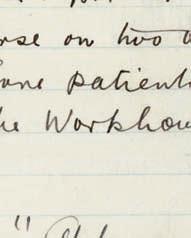 rse on two o
ane patient
he Workhou
"